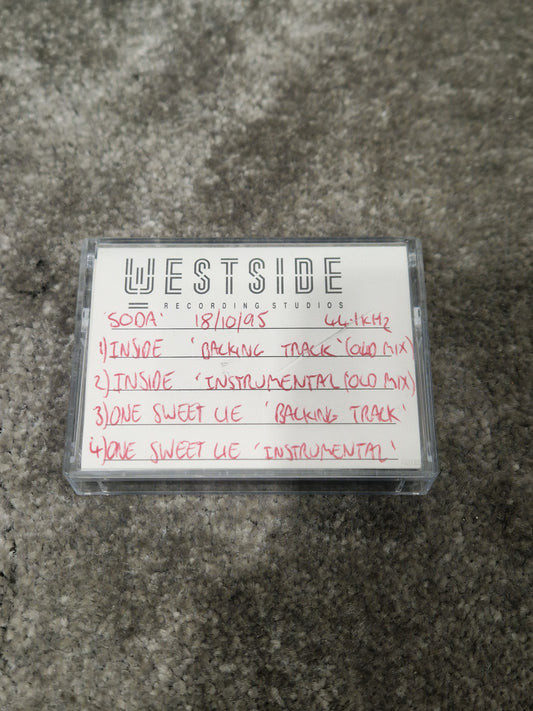 WESTSIDE
RECORDING STUDIOS
'SODA' 18/10/95 44.1KHz
1) INSIDE 'BACKING TRACK' (OLD MIX)
2) INSIDE 'INSTRUMENTAL (OLD MIX)
3) ONE SWEET LIE 'BACKING TRACK'
4) ONE SWEET LIE 'INSTRUMENTAL'